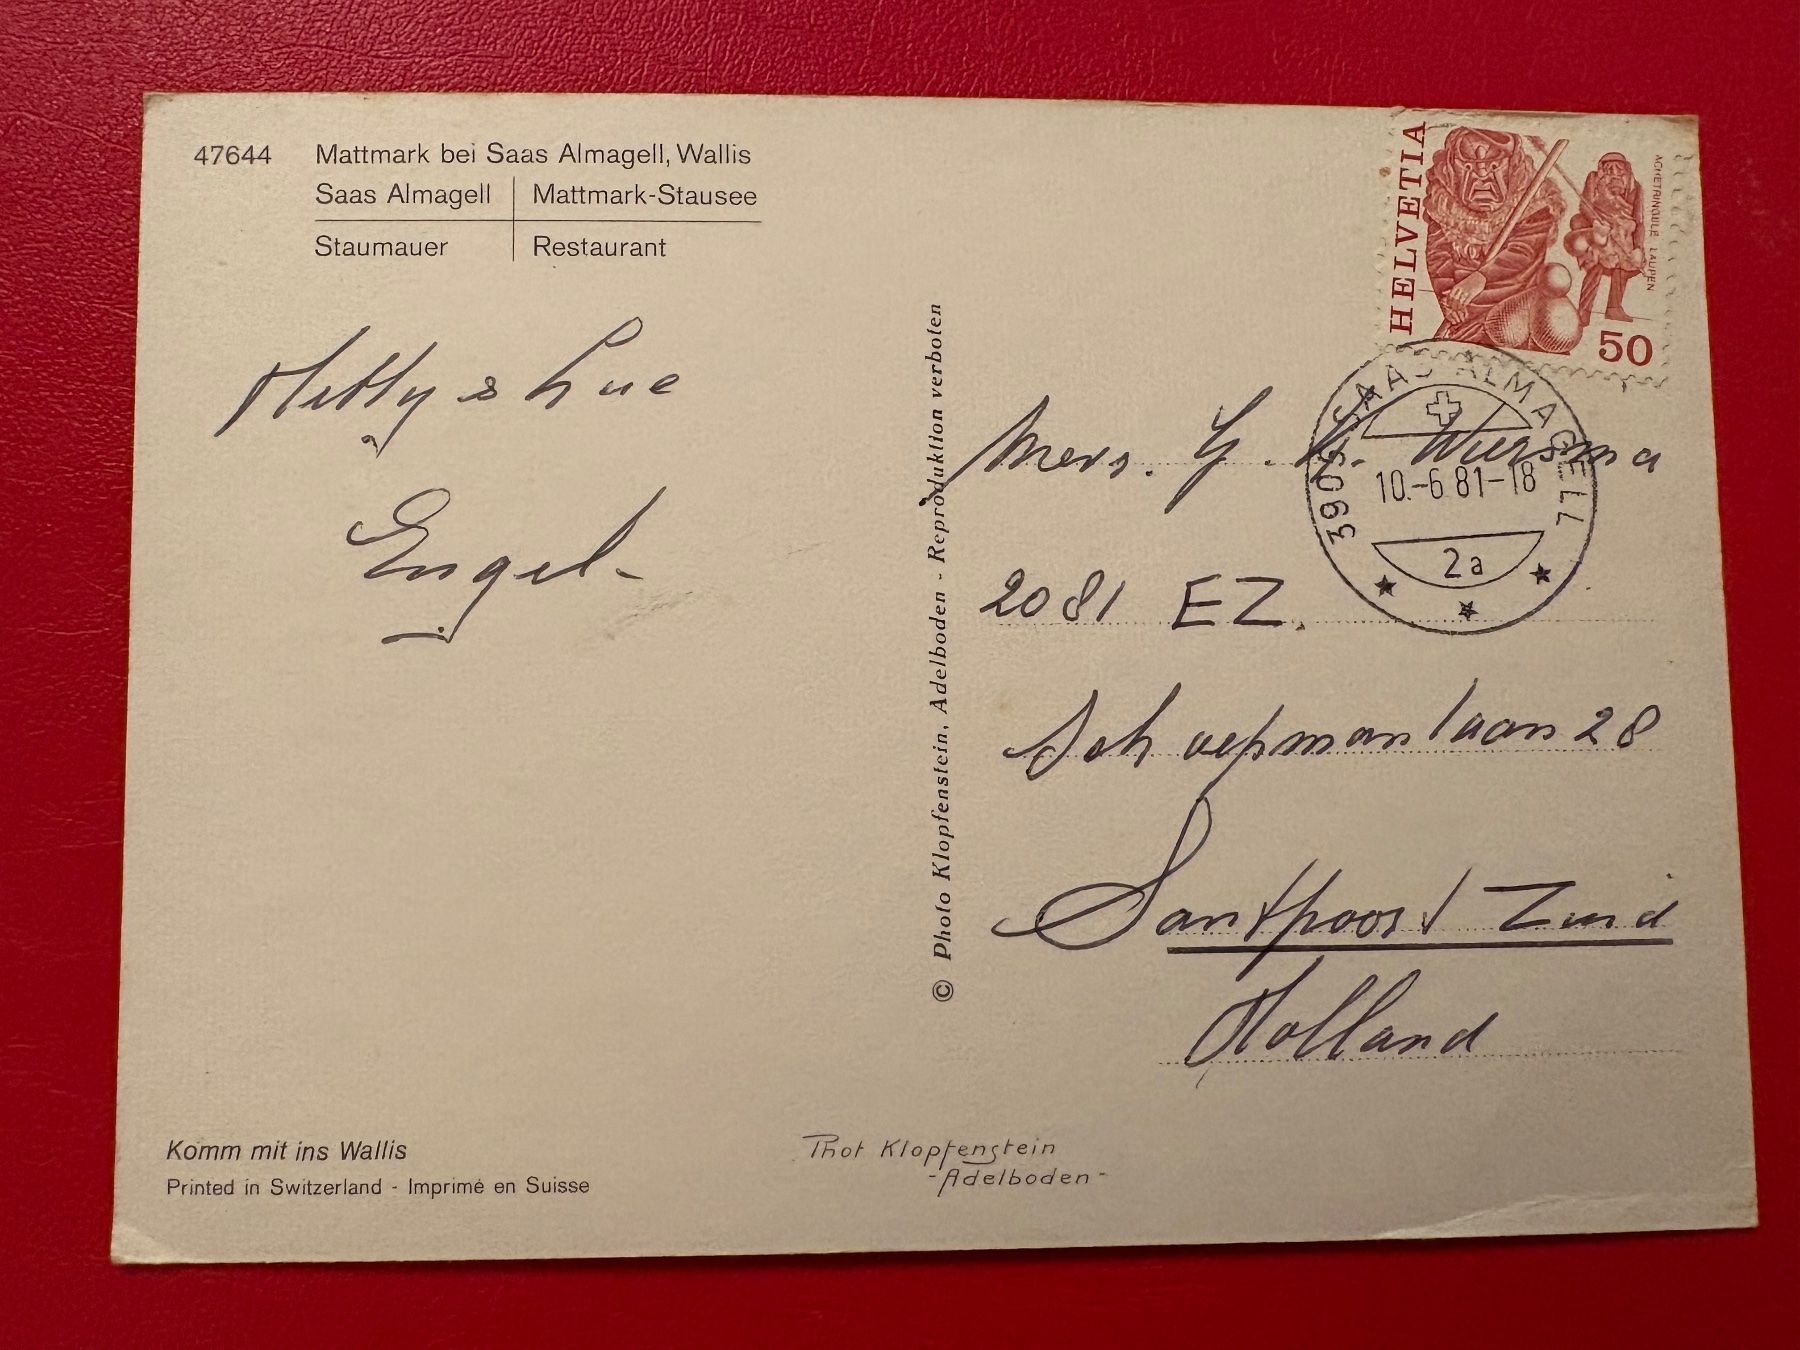 47644 Mattmark bei Saas Almagell, Wallis
Saas Almagell Mattmark-Stausee
Staumauer Restaurant
HELVETIA
ACHETRINGELE LAUPEN
50
3905 SAAS ALMAGELL
10.-6.81-18
2a
Hetty & Lue
Engel-
© Photo Klopfenstein, Adelboden - Reproduktion verboten
G. H. Wiersma
2081 EZ.
Schoepmanlaan 28
Santpoort Zuid
Holland
Komm mit ins Wallis
Printed in Switzerland - Imprimé en Suisse
Phot Klopfenstein
-Adelboden-